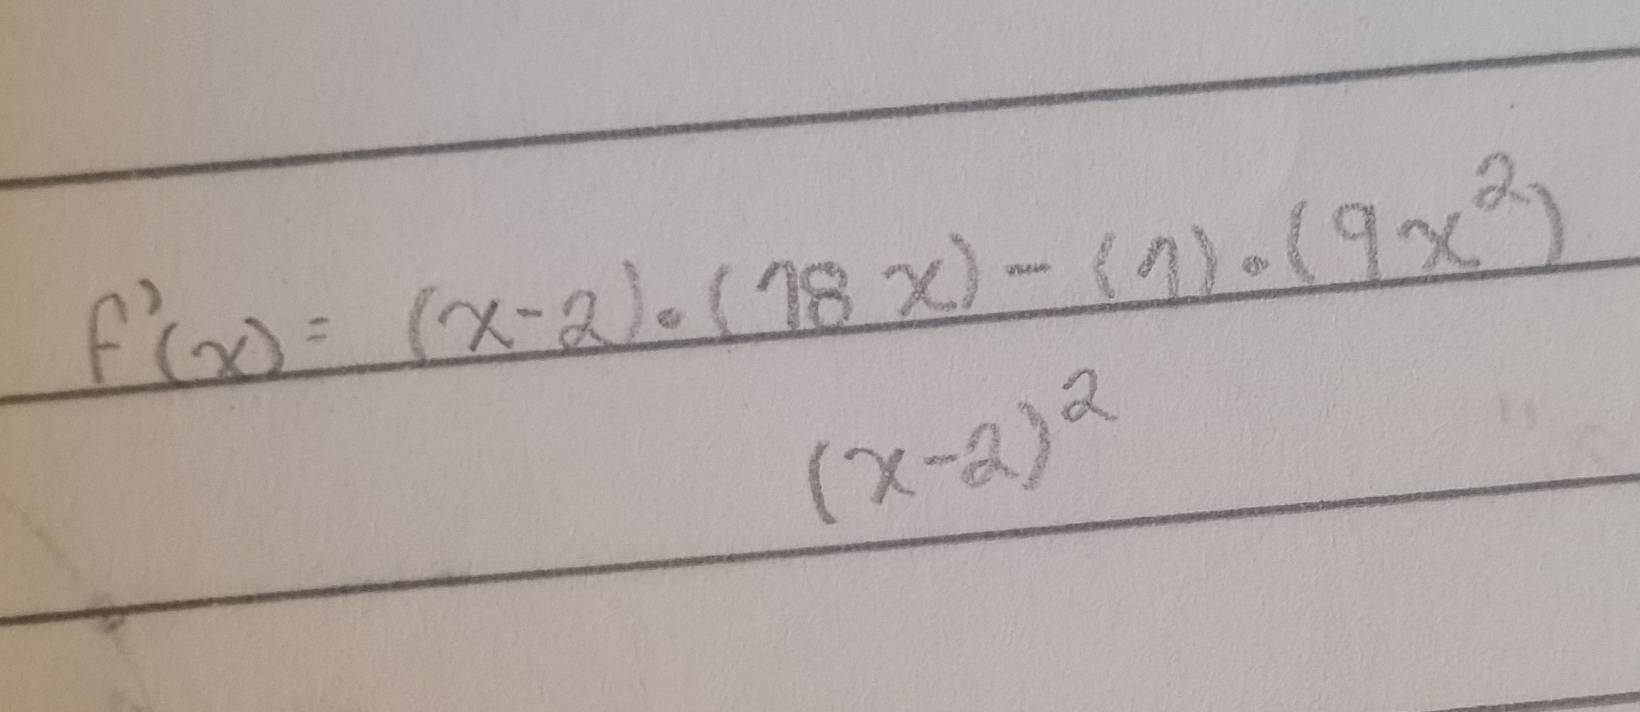 f'(x) = (x-2)·(18x) - (1)·(9x²)
(x-2)²